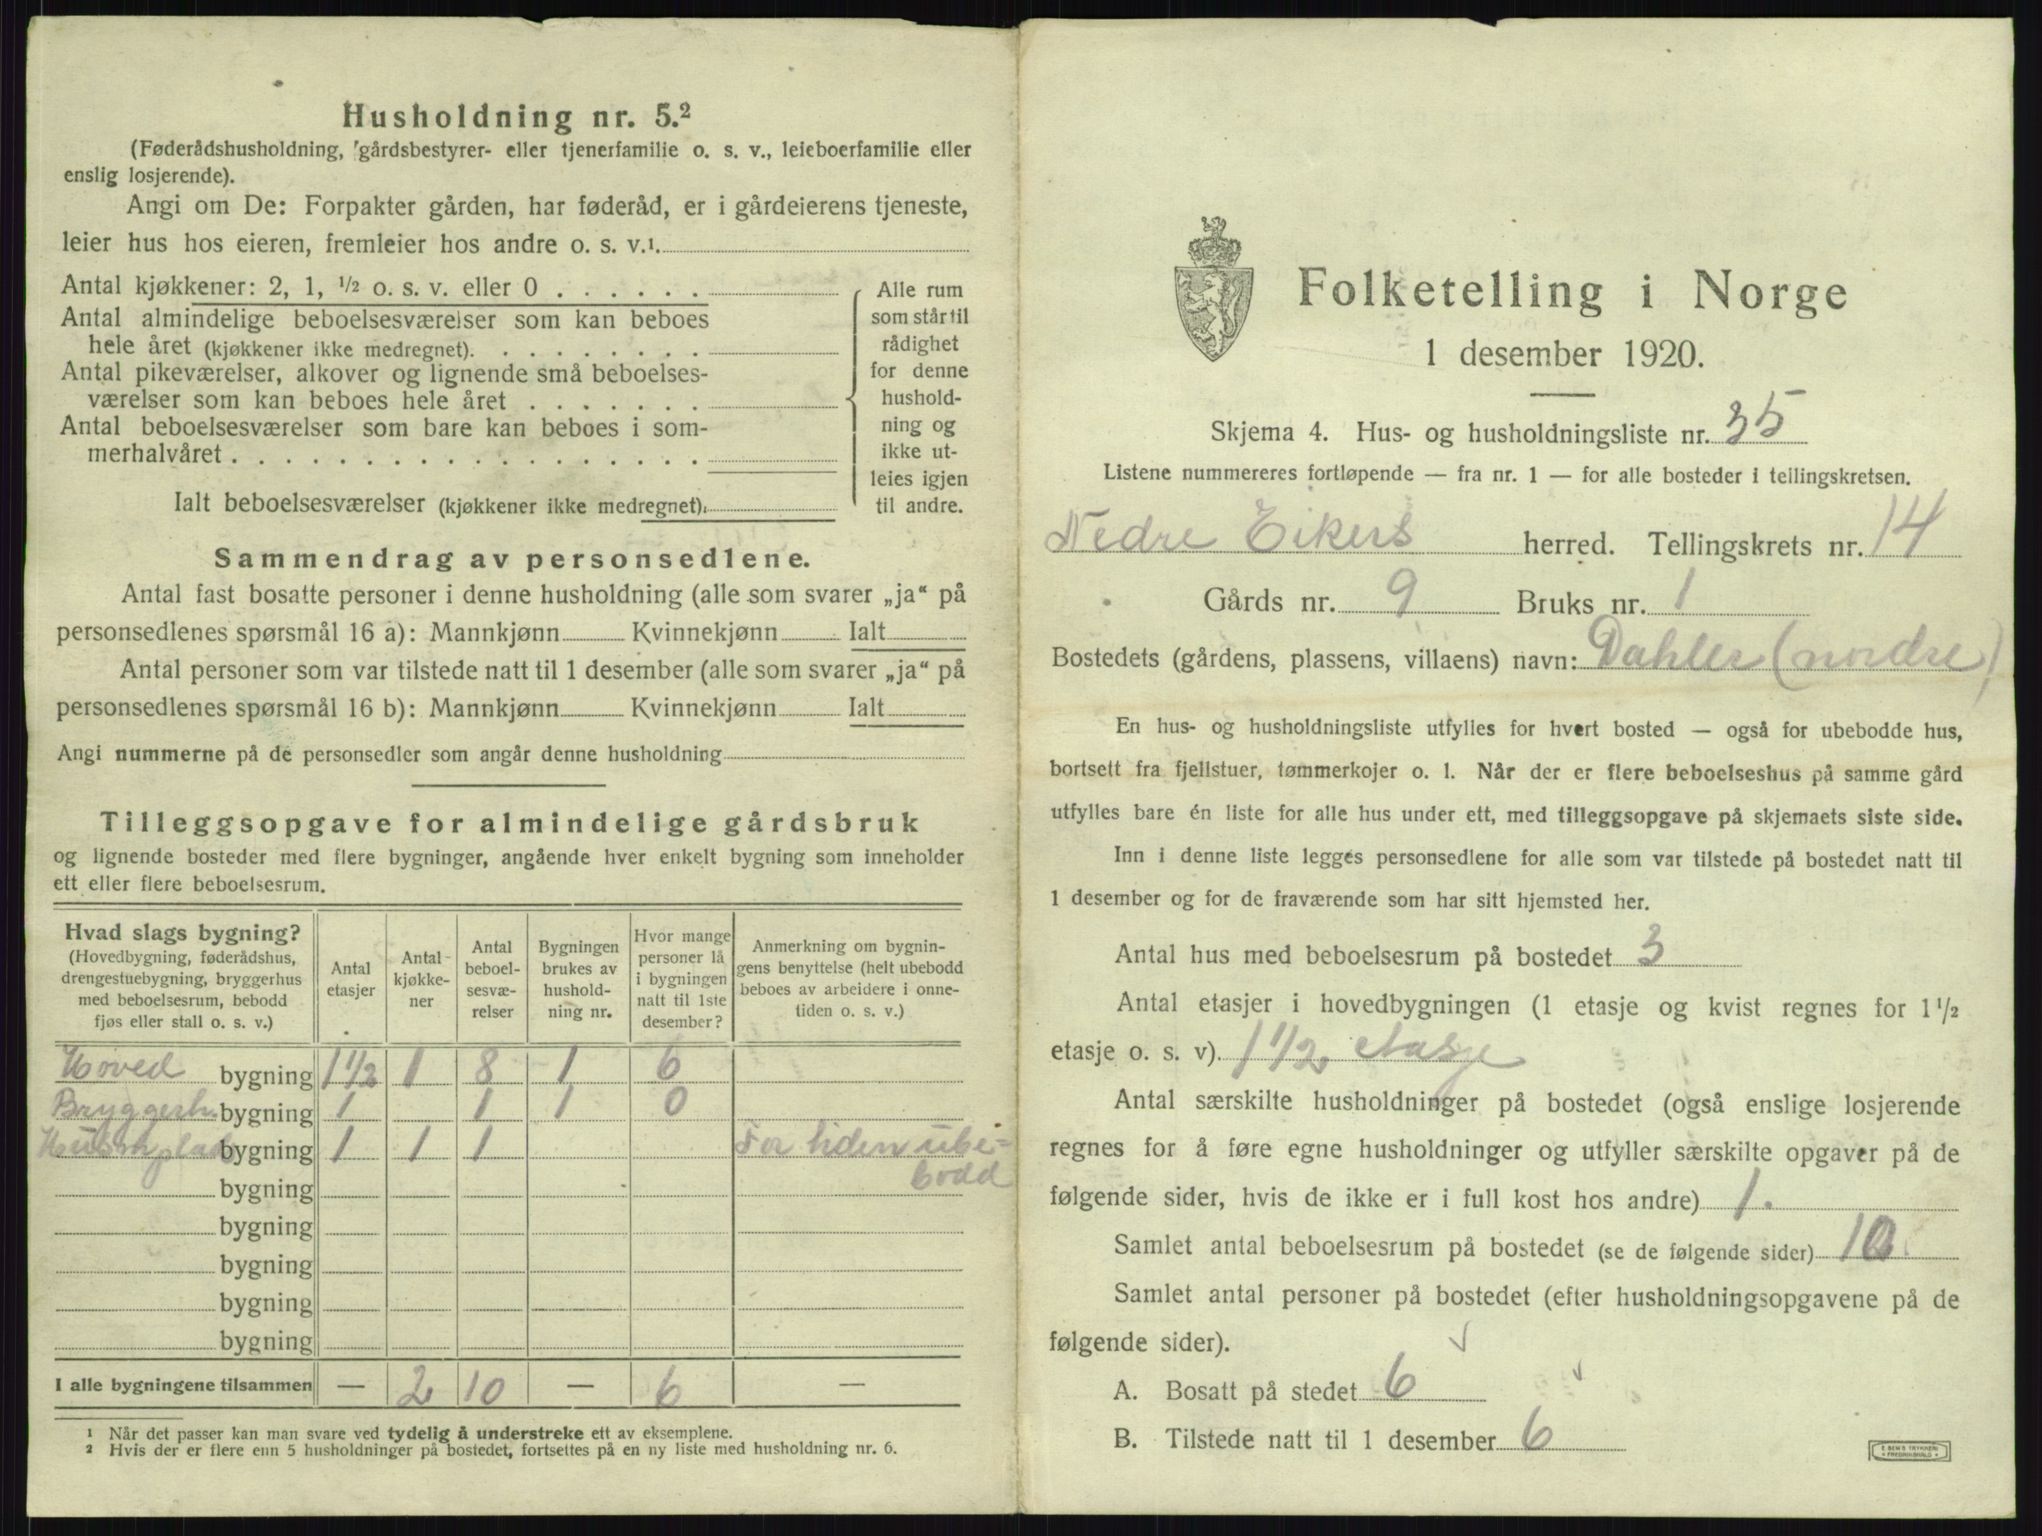 Husholdning nr. 5.²
(Føderådshusholdning, gårdsbestyrer- eller tjenerfamilie o. s. v., leieboerfamilie eller
enslig losjerende).
Angi om De: Forpakter gården, har føderåd, er i gårdeierens tjeneste,
leier hus hos eieren, fremleier hos andre o. s. v.¹
Antal kjøkkener: 2, 1, ½ o. s. v. eller 0
Antal almindelige beboelsesværelser som kan beboes
hele året (kjøkkener ikke medregnet).
Antal pikeværelser, alkover og lignende små beboelses-
værelser som kan beboes hele året
Antal beboelsesværelser som bare kan beboes i som-
merhalvåret
Ialt beboelsesværelser (kjøkkener ikke medregnet).
Alle rum
som står til
rådighet
for denne
hushold-
ning og
ikke ut-
leies igjen
til andre.
Sammendrag av personsedlene.
Antal fast bosatte personer i denne husholdning (alle som svarer „ja“ på
personsedlenes spørsmål 16 a): Mannkjønn Kvinnekjønn Ialt
Antal personer som var tilstede natt til 1 desember (alle som svarer „ja“ på
personsedlenes spørsmål 16 b): Mannkjønn Kvinnekjønn Ialt
Angi nummerne på de personsedler som angår denne husholdning
Tilleggsopgave for almindelige gårdsbruk
og lignende bosteder med flere bygninger, angående hver enkelt bygning som inneholder
ett eller flere beboelsesrum.
Hvad slags bygning?
(Hovedbygning, føderådshus,
drengestuebygning, bryggerhus
med beboelsesrum, bebodd
fjøs eller stall o. s. v.)
Antal
etasjer
Antal
kjøkke-
ner
Antal
beboel-
sesvæ-
relser
Bygningen
brukes av
hushold-
ning nr.
Hvor mange
personer lå
i bygningen
natt til 1ste
desember?
Anmerkning om bygnin-
gens benyttelse (helt ubebodd
beboes av arbeidere i onne-
tiden o. s. v.)
Hoved bygning 1½ 1 8 1 6
Bryggerh. bygning 1 1 1 0
bygning 1 1 1 For tiden ube-
bygning bodd
bygning
bygning
bygning
bygning
I alle bygningene tilsammen — 2 10 — 6 —
¹ Når det passer kan man svare ved tydelig å understreke ett av eksemplene.
² Hvis der er flere enn 5 husholdninger på bostedet, fortsettes på en ny liste med husholdning nr. 6.
Folketelling i Norge
1 desember 1920.
Skjema 4. Hus- og husholdningsliste nr. 35
Listene nummereres fortløpende — fra nr. 1 — for alle bosteder i tellingskretsen.
Nedre Eikers herred. Tellingskrets nr. 14
Gårds nr. 9 Bruks nr. 1
Bostedets (gårdens, plassens, villaens) navn: Dahler (nordre)
En hus- og husholdningsliste utfylles for hvert bosted — også for ubebodde hus,
bortsett fra fjellstuer, tømmerkojer o. l. Når der er flere beboelseshus på samme gård
utfylles bare én liste for alle hus under ett, med tilleggsopgave på skjemaets siste side.
Inn i denne liste legges personsedlene for alle som var tilstede på bostedet natt til
1 desember og for de fraværende som har sitt hjemsted her.
Antal hus med beboelsesrum på bostedet 3
Antal etasjer i hovedbygningen (1 etasje og kvist regnes for 1½
etasje o. s. v). 1½ etasje
Antal særskilte husholdninger på bostedet (også enslige losjerende
regnes for å føre egne husholdninger og utfyller særskilte opgaver på de
følgende sider, hvis de ikke er i full kost hos andre) 1.
Samlet antal beboelsesrum på bostedet (se de følgende sider) 10
Samlet antal personer på bostedet (efter husholdningsopgavene på de
følgende sider).
A. Bosatt på stedet 6
B. Tilstede natt til 1 desember 6